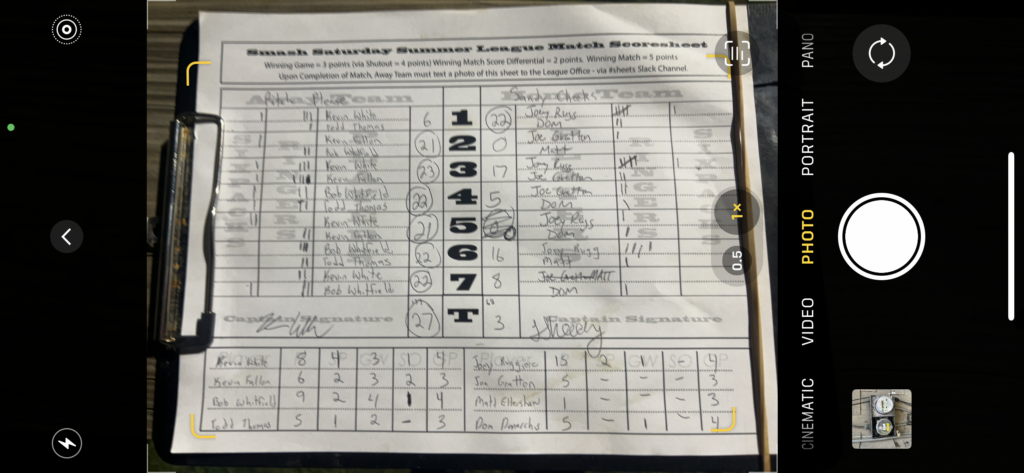 Smash Saturday Summer League Match Scoresheet
Winning Game = 3 points (via Shutout = 4 points) Winning Match Score Differential = 2 points. Winning Match = 5 points
Upon Completion of Match, Away Team must text a photo of this sheet to the League Office - via #sheets Slack Channel.
Team Team
Kevin White 6 1 22 Joey Rugg
Todd Thomas Dom
Kevin Fallon 21 2 0 Joe Gratton
Bob Whitfield Matt
Kevin White 23 3 17 Joey Rugg
Kevin Fallon Joe Gratton
Bob Whitfield 22 4 5 Joe Gratton
Todd Thomas Dom
Kevin White 21 5 0 Joey Rugg
Kevin Fallon Dom
Bob Whitfield 22 6 16 Joey Rugg
Todd Thomas Matt
Kevin White 22 7 8 Matt
Bob Whitfield Dom
Captain Signature 27 T 3 Captain Signature
Kevin White 8 4 3 1 4 15 2 1 - 4
Kevin Fallon 6 2 3 2 3 Joe Gratton 5 - - - 3
Bob Whitfield 9 2 4 1 4 Matt 1 - - - 3
Todd Thomas 5 1 2 - 3 Dom 5 - 1 - 4
PANO
PORTRAIT
PHOTO
VIDEO
CINEMATIC
1×
0.5